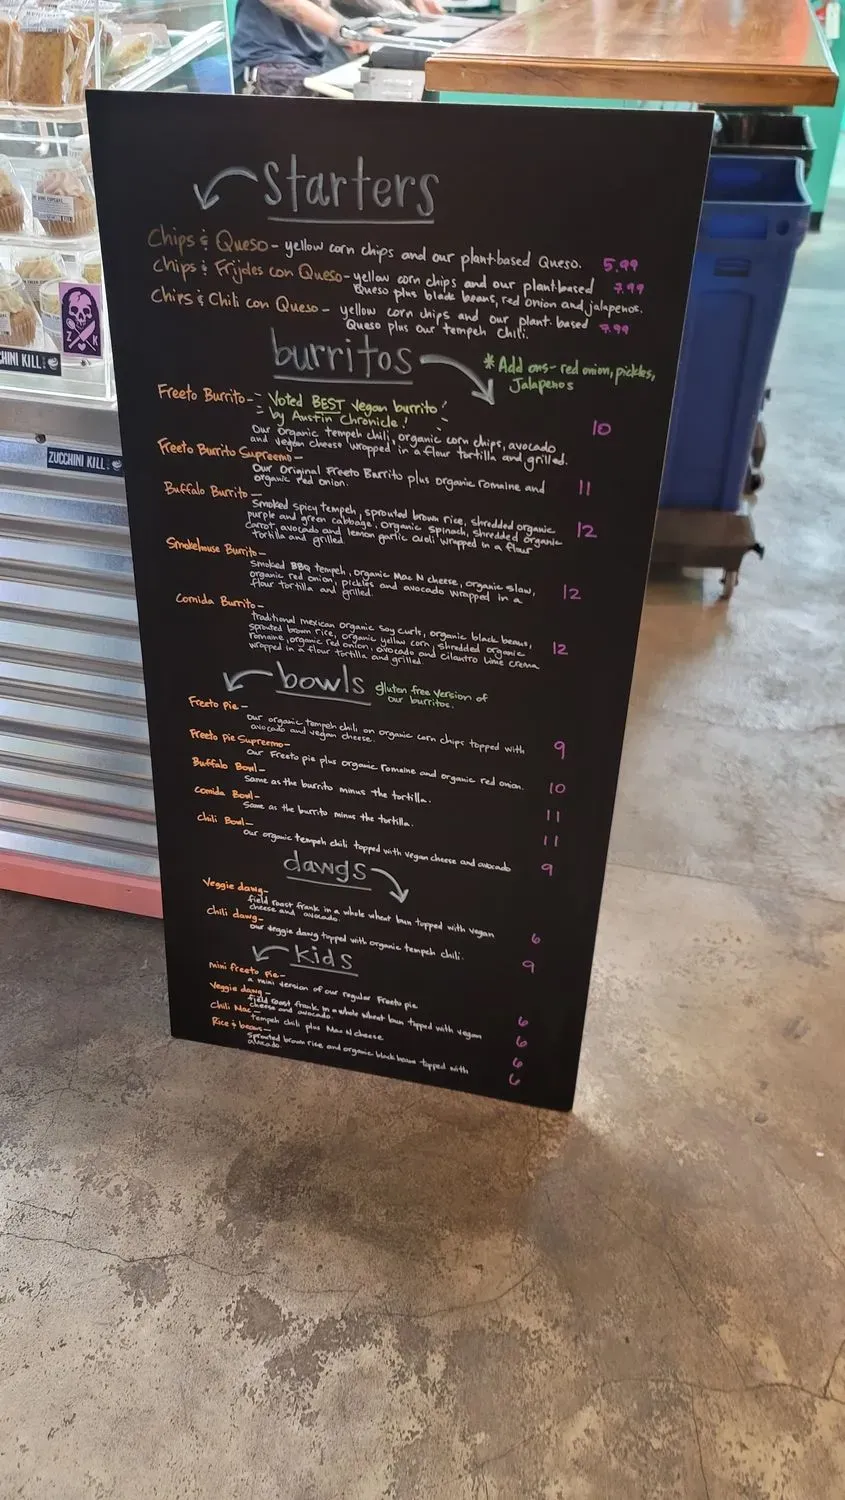 Starters
Chips & Queso - yellow corn chips and our plant-based Queso. 5.99
Chips & Frijoles con Queso - yellow corn chips and our plant-based 7.99
Queso plus black beans, red onion and jalapenos.
Chips & Chili con Queso - yellow corn chips and our plant-based 7.99
Queso plus our tempeh chili.
burritos
* Add ons - red onion, pickles,
Jalapenos
Freeto Burrito - Voted BEST Vegan burrito
by Austin Chronicle! 10
Our Organic tempeh chili, organic corn chips, avocado
and vegan cheese wrapped in a flour tortilla and grilled.
Freeto Burrito Supreemo -
Our Original Freeto Burrito plus organic romaine and 11
organic red onion.
Buffalo Burrito -
Smoked spicy tempeh, sprouted brown rice, shredded organic
purple and green cabbage, organic spinach, shredded organic 12
carrot, avocado and lemon garlic aioli wrapped in a flour
tortilla and grilled
Smokehouse Burrito -
Smoked BBQ tempeh, organic Mac N cheese, organic slaw,
organic red onion, pickles and avocado wrapped in a 12
flour tortilla and grilled.
Comida Burrito -
traditional mexican organic soy curls, organic black beans,
sprouted brown rice, organic yellow corn, shredded organic 12
romaine organic red onion, avocado and cilantro lime crema
wrapped in a flour tortilla and grilled
bowls gluten free version of
our burritos.
Freeto Pie -
Our organic tempeh chili on organic corn chips topped with 9
avocado and vegan cheese.
Freeto Pie Supreemo -
Our Freeto pie plus organic romaine and organic red onion. 10
Buffalo Bowl -
Same as the burrito minus the tortilla. 11
Comida Bowl -
Same as the burrito minus the tortilla. 11
Chili Bowl -
Our organic tempeh chili topped with vegan cheese and avocado 9
dawgs
Veggie dawg -
field roast frank in a whole wheat bun topped with vegan 6
cheese and avocado.
Chili dawg -
Our veggie dawg topped with organic tempeh chili. 9
kids
mini freeto pie -
a mini version of our regular Freeto pie 6
Veggie dawg -
field roast frank in a whole wheat bun topped with vegan 6
cheese and avocado.
Chili Mac -
tempeh chili plus Mac N cheese 6
Rice & beans -
sprouted brown rice and organic black beans topped with 6
avocado.
Z K
HINI KILL
ZUCCHINI KILL